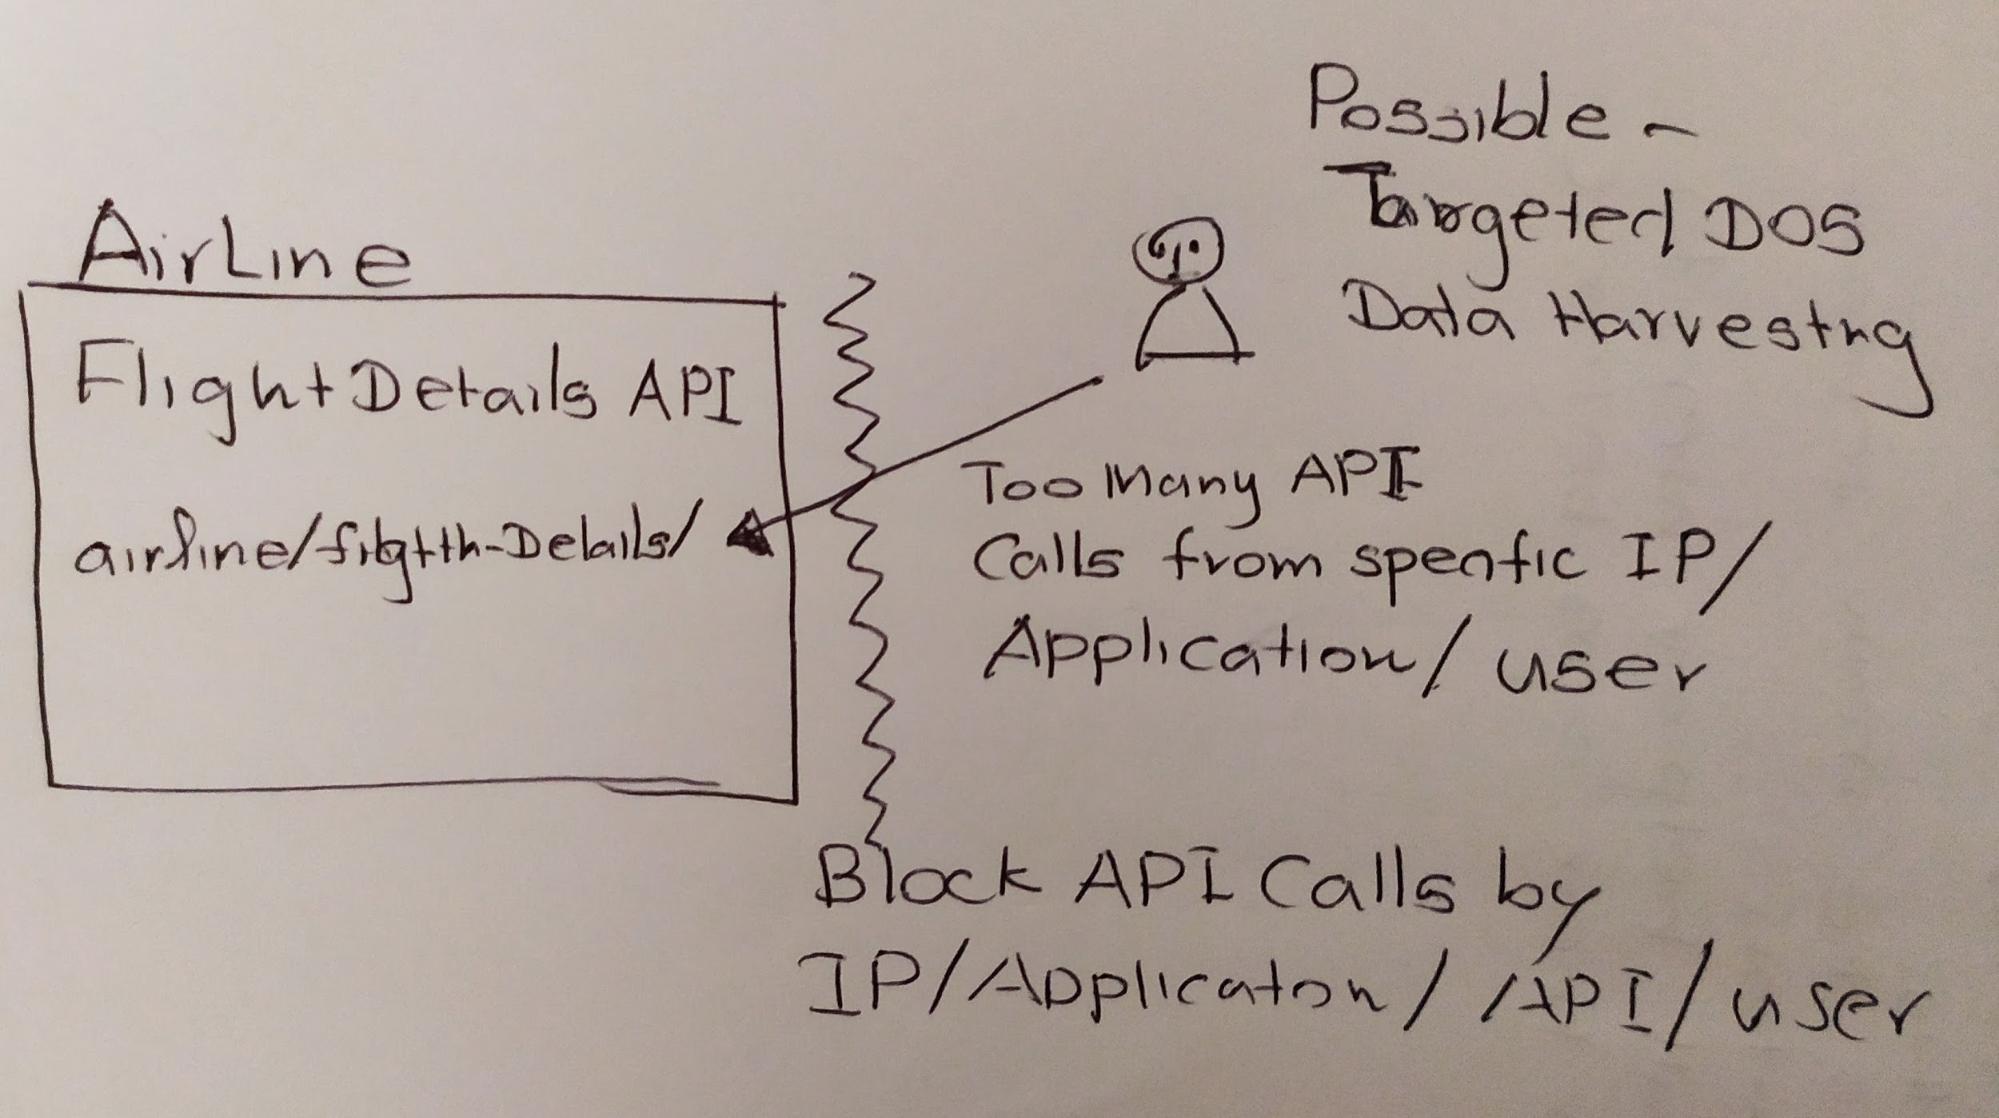 AirLine
FlightDetails API
airline/filgtth-Details/
Possible -
Targeted DOS
Data Harvesting
Too Many API
Calls from spenfic IP/
Application/ user
Block API Calls by
IP/Applicaton/ API/user